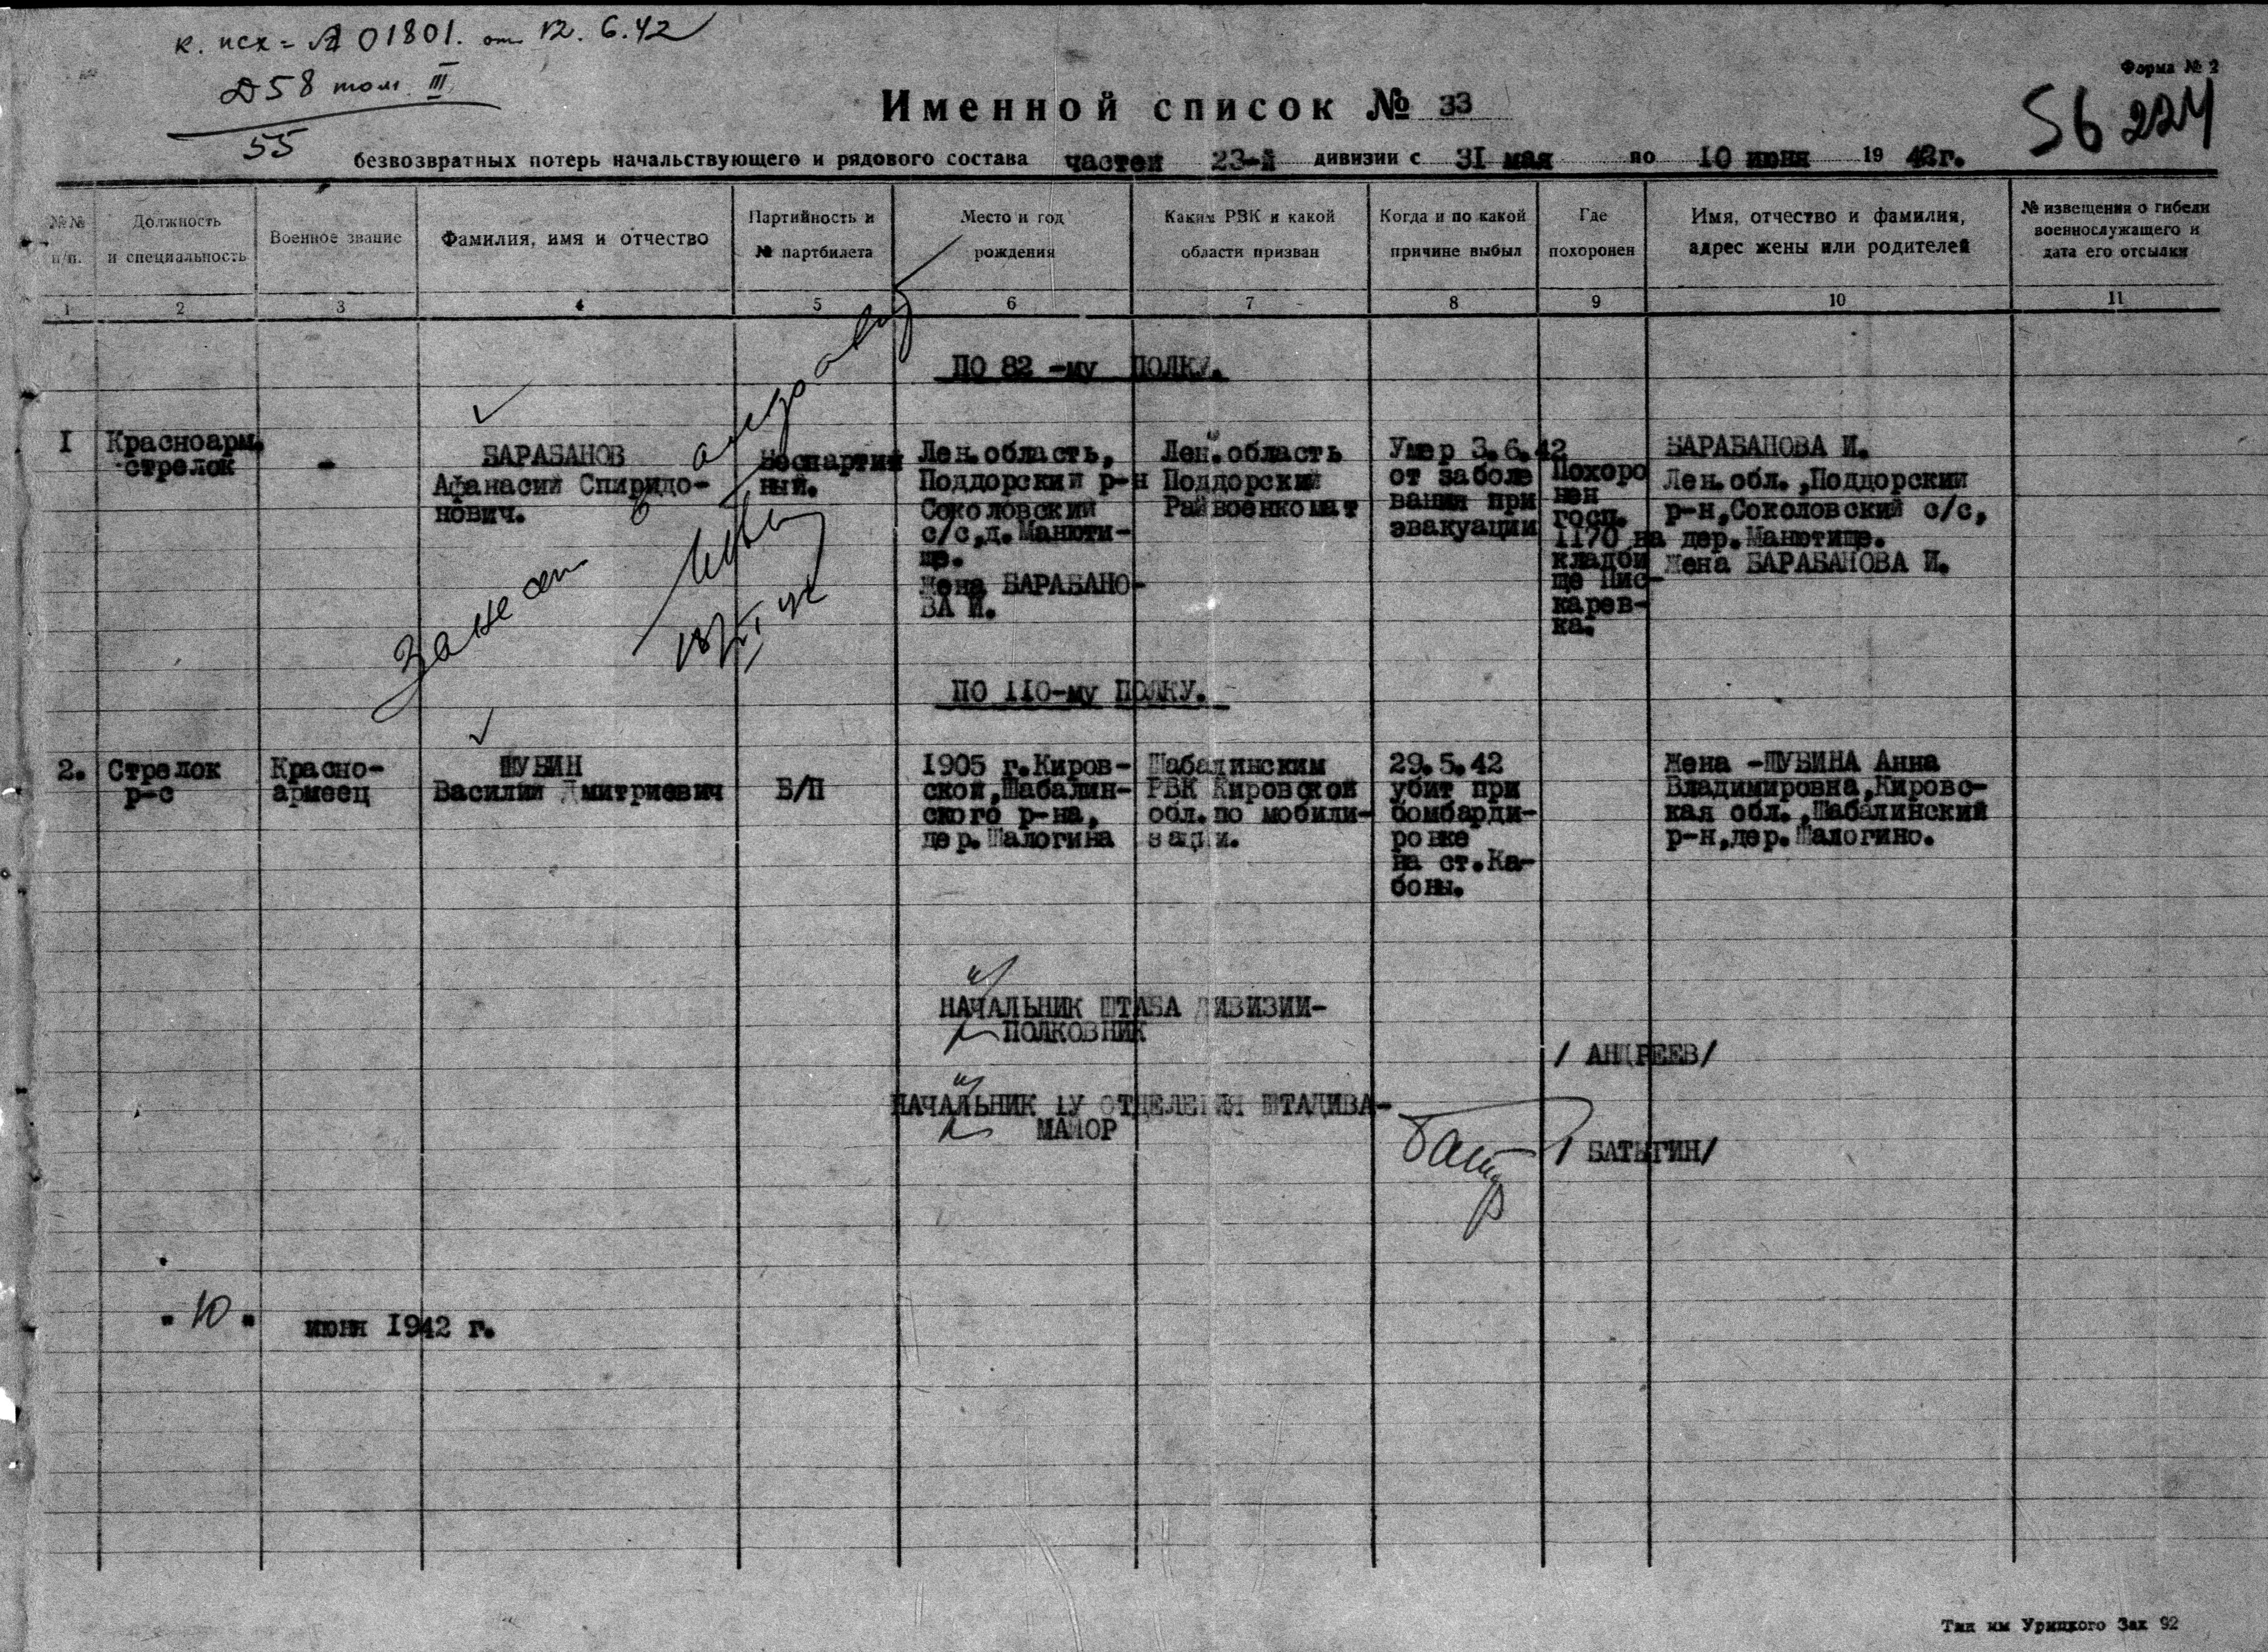 к. исх = № 01801. от 12. 6. 42
Д 58 том. III
55
Форма № 2
56 224
Именной список № 33
безвозвратных потерь начальствующего и рядового состава частей 23-й дивизии с 31 мая по 10 июня 1942г.
№№ п/п.
Должность
и специальность
Военное звание
Фамилия, имя и отчество
Партийность и
№ партбилета
Место и год
рождения
Каким РВК и какой
области призван
Когда и по какой
причине выбыл
Где
похоронен
Имя, отчество и фамилия,
адрес жены или родителей
№ извещения о гибели
военнослужащего и
дата его отсылки
1 2 3 4 5 6 7 8 9 10 11
ПО 82 -му ПОЛКУ.
I
Красноарм.
стрелок
-
БАРАБАНОВ
Афанасий Спиридо-
нович.
Беспартий
ный.
Лен.область,
Поддорский р-н
Соколовский
с/с,д.Манюти-
ще.
Жена БАРАБАНО-
ВА И.
Лен.область
Поддорский
Райвоенкомат
Умер 3.6.42
от заболе
вания при
эвакуации
Похоро
нен
госп.
1170 на
кладби
ще Пис-
карев-
ка.
БАРАБАНОВА И.
Лен.обл.,Поддорский
р-н,Соколовский с/с,
дер.Манютище.
Жена БАРАБАНОВА И.
Занесен
в алфавит
ПО 110-му ПОЛКУ.
2.
Стрелок
р-с
Красно-
армеец
ШУБИН
Василий Дмитриевич
Б/П
1905 г.Киров-
ской,Шабалин-
ского р-на,
дер.Шалогина
Шабалинским
РВК Кировской
обл.по мобили-
зации.
29.5.42
убит при
бомбарди-
ровке
на ст.Ка-
боны.
Жена -ШУБИНА Анна
Владимировна,Кировс-
кая обл.,Шабалинский
р-н,дер.Шалогино.
НАЧАЛЬНИК ШТАБА ДИВИЗИИ-
ПОЛКОВНИК
/ АНДРЕЕВ/
НАЧАЛЬНИК 1У ОТДЕЛЕНИЯ ШТАДИВА-
МАЙОР
/ БАТЫГИН/
"10" июня 1942 г.
Тип им Урицкого Зак 92